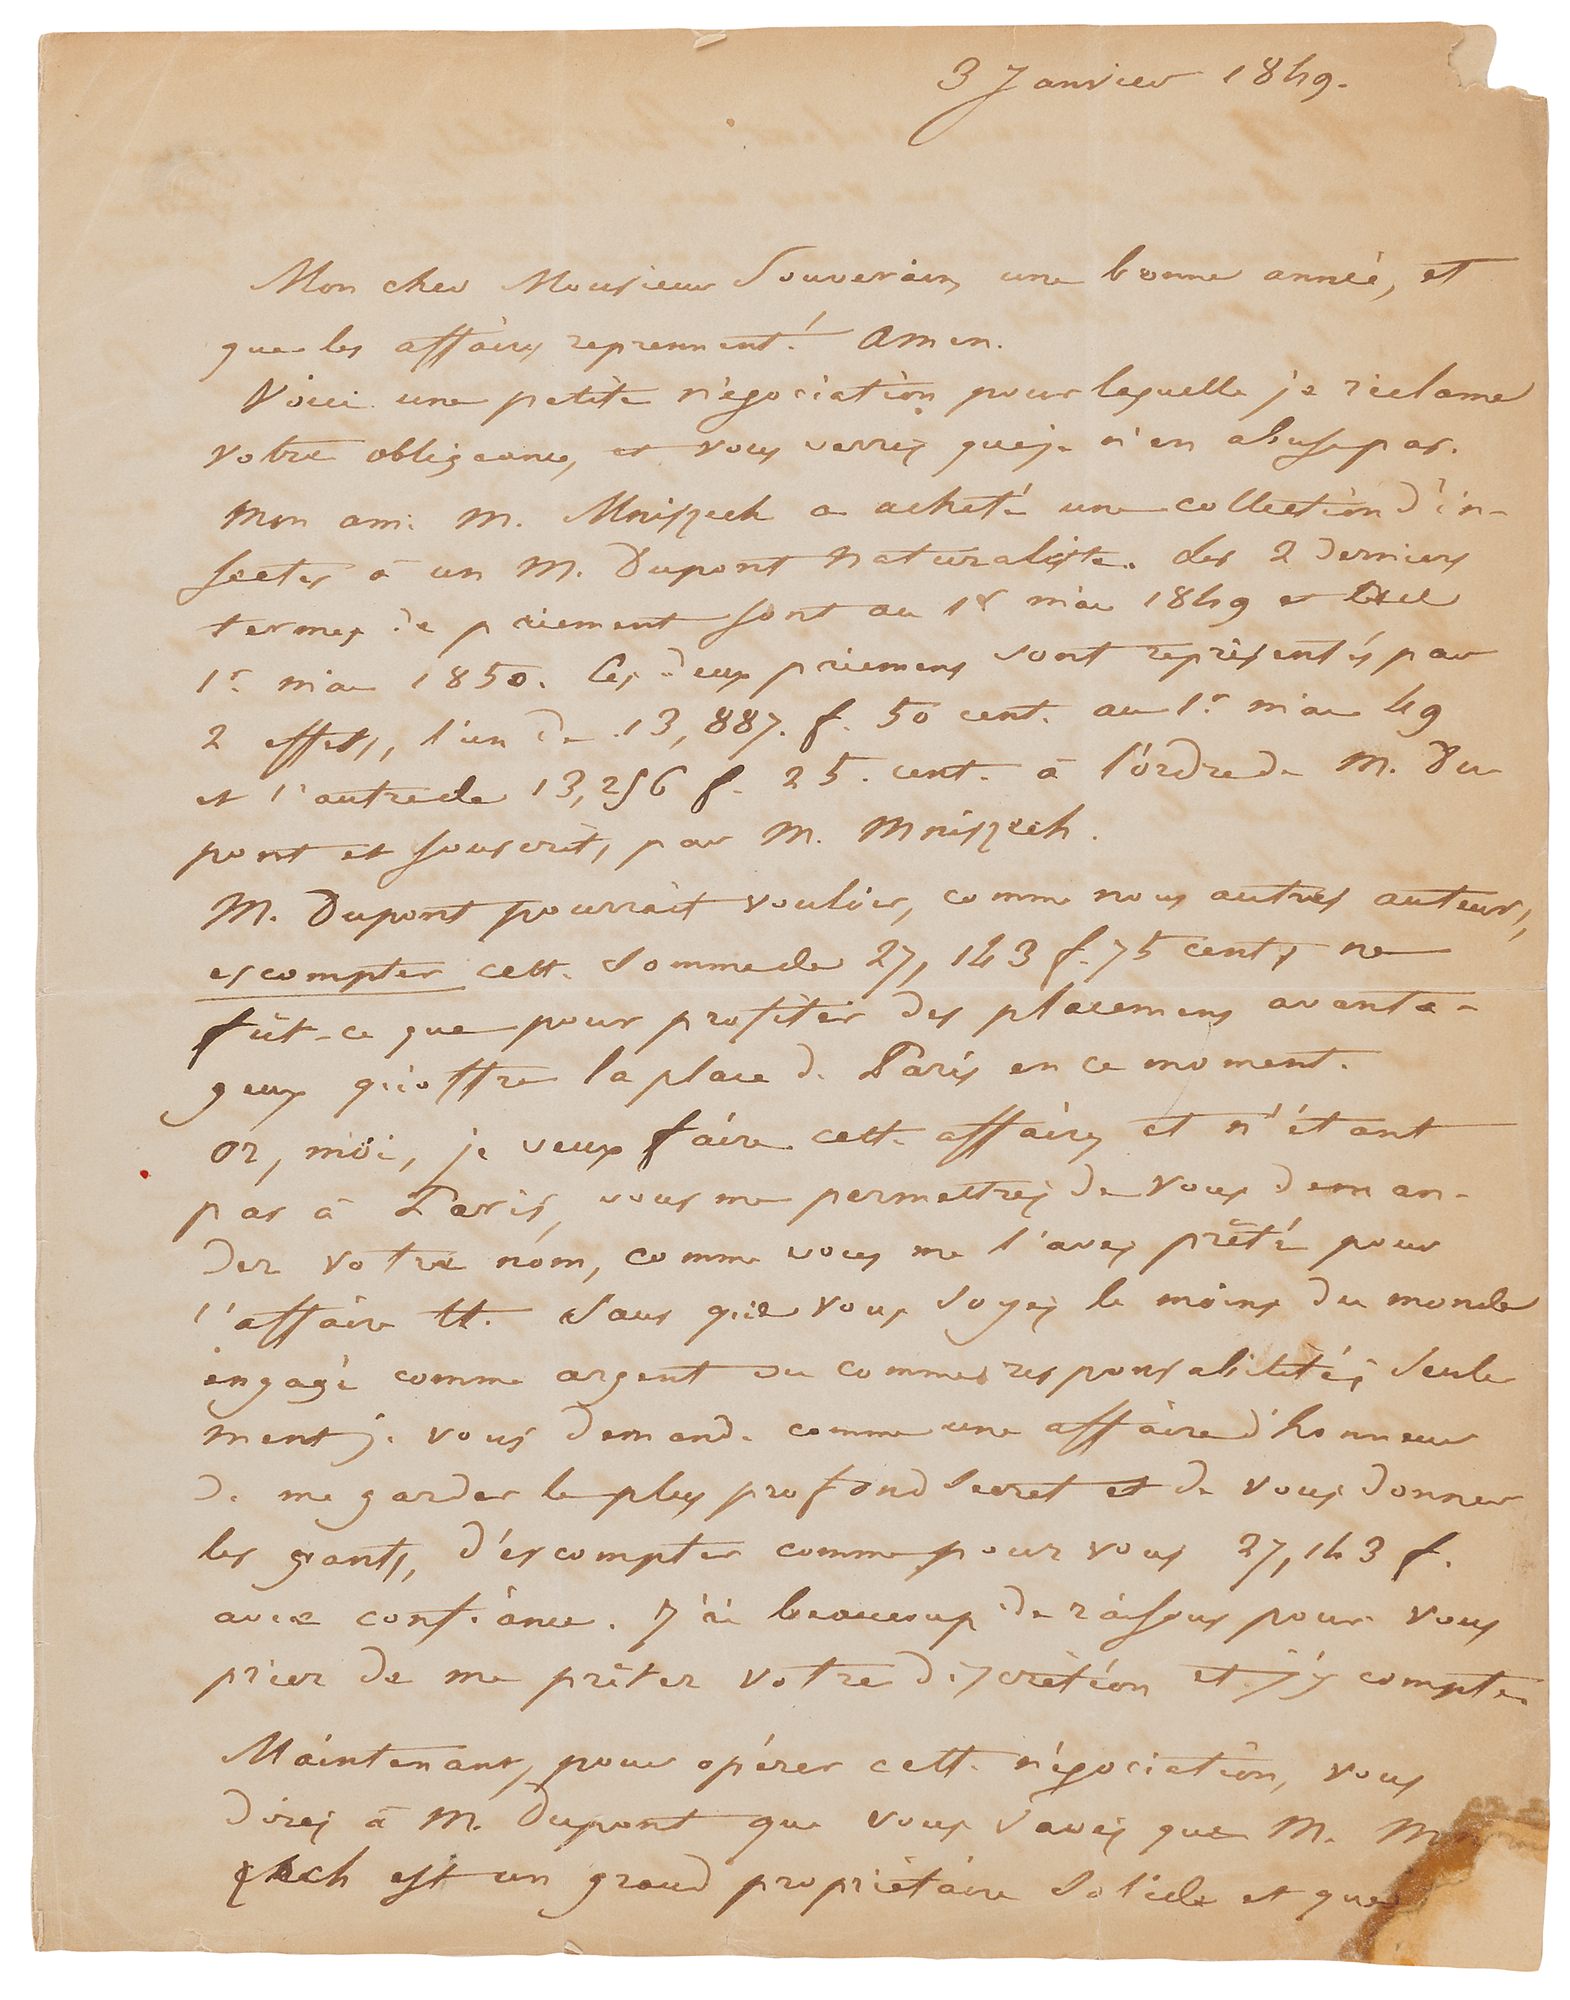 3 Janvier 1849.
Mon cher Monsieur Souverain, une bonne année, et
que les affaires reprennent! Amen.
Voici une petite négociation pour laquelle je réclame
votre obligeance, et vous verrez que je n'en abuse pas.
Mon ami M. Mniszech a acheté une collection d'in-
sectes à un M. Dupont naturaliste. Les 2 derniers
termes de paiement sont au 1r mai 1849 et
1r mai 1850. Ces deux paiemens sont représentés par
2 effets, l'un de 13,887. f. 50 cent. au 1r mai 49
et l'autre de 13,256 f. 25. cent. à l'ordre de M. Du
pont et souscrits, par M. Mniszech.
M. Dupont pourrait vouloir, comme nous autres auteurs,
escompter cette somme de 27,143 f. 75 cents ne
fût-ce que pour profiter des placemens avanta-
geux qu'offre la place de Paris en ce moment.
Or, moi, je veux faire cette affaire, et n'étant
pas à Paris, vous me permettrez de vous deman-
der votre nom, comme vous me l'avez prêté pour
l'affaire sans que vous soyez le moins du monde
engagé comme argent ou comme responsabilité; seule
ment je vous demande comme une affaire d'honneur
de me garder le plus profond secret et de vous donner
les gants, d'escompter comme pour vous 27,143 f.
avec confiance. J'ai beaucoup de raisons pour vous
prier de me prêter votre discrétion et j'y compte.
Maintenant, pour opérer cette négociation, vous
direz à M. Dupont que vous savez que M.
zech est un grand propriétaire solide et que